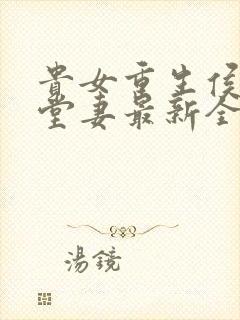 貴女重生侯
堂妻最新全
湯鏡